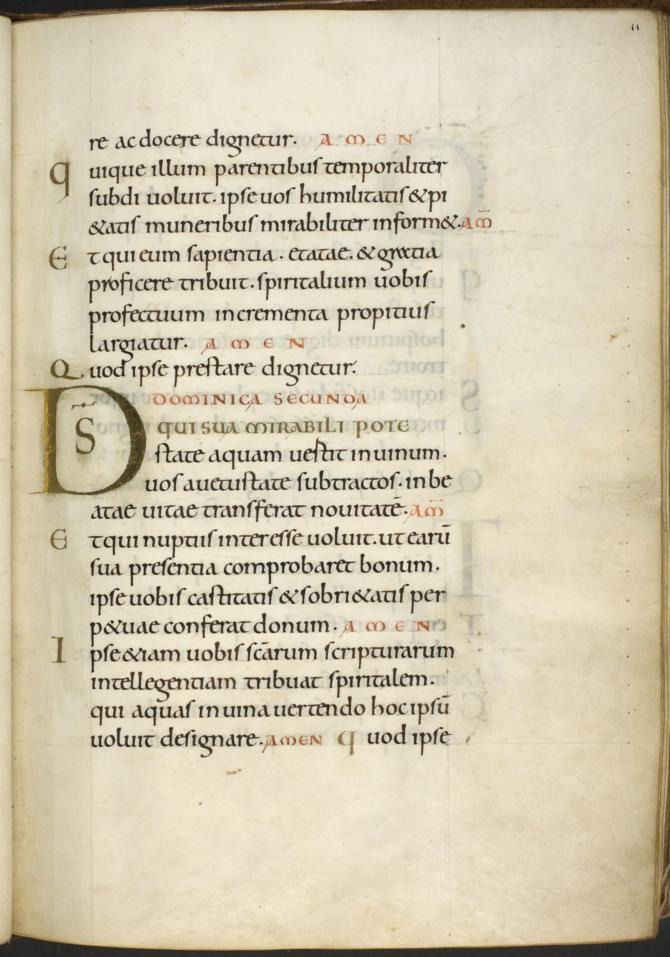 11
re ac docere dignetur. AMEN
Quique illum parentibus temporaliter
subdi uoluit. ipse uos humilitatis & pi
&atis muneribus mirabiliter inform&. AM̄
Et qui eum sapientia. etatae. & gratia
proficere tribuit. spiritalium uobis
profectuum incrementa propitius
largiatur. AMEN
Quod ipse prestare dignetur.
DOMINICA SECUNDA
DS̄ QUI SUA MIRABILI POTE
state aquam uertit in uinum.
uos a uetustate subtractos. in be
atae uitae transferat nouitatē. AM̄
Et qui nuptiis interesse uoluit. ut earū
sua presentia comprobaret bonum.
ipse uobis castitatis & sobri&atis per
p&uae conferat donum. AMEN
Ipse &iam uobis scārum scripturarum
intellegentiam tribuat spiritalem.
qui aquas in uina uertendo hoc ipsū
uoluit designare. AMEN Quod ipse